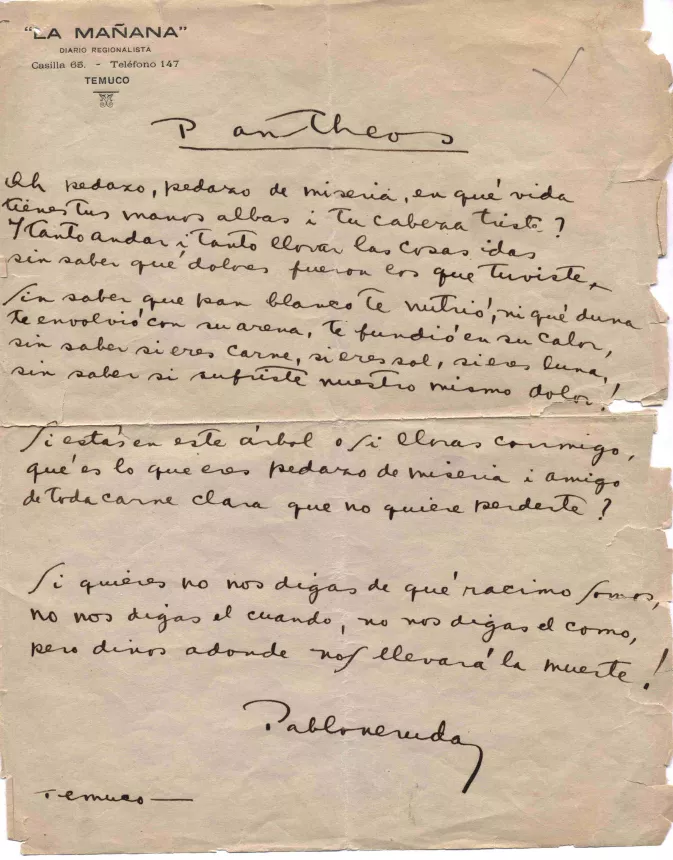 "LA MAÑANA"
DIARIO REGIONALISTA
Casilla 65. - Teléfono 147
TEMUCO
Pantheos
Oh pedazo, pedazo de miseria, en qué vida
tienes tus manos albas i tu cabeza triste?
Y tanto andar i tanto llorar las cosas idas
sin saber qué dolores fueron los que tuviste,
Sin saber que pan blanco te nutrió, ni qué duna
te envolvió con su arena, te fundió en su calor,
sin saber si eres carne, si eres sol, si eres luna,
sin saber si sufriste nuestro mismo dolor!
Si estás en este árbol o si lloras conmigo,
qué es lo que eres pedazo de miseria i amigo
de toda carne clara que no quiere perderte?
Si quieres no nos digas de qué racimo somos,
no nos digas el cuando, no nos digas el como,
pero dinos adonde nos llevará la muerte!
Pablo neruda
Temuco —